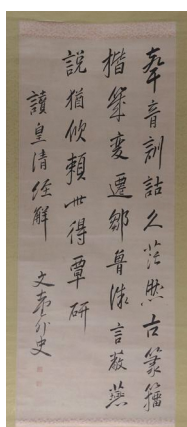 本音訓詁久茫然古篆籀
楷幾變遷鄒魯微言蔽蕪
說猶倀賴世得覃研
讀皇清經解
文布外史